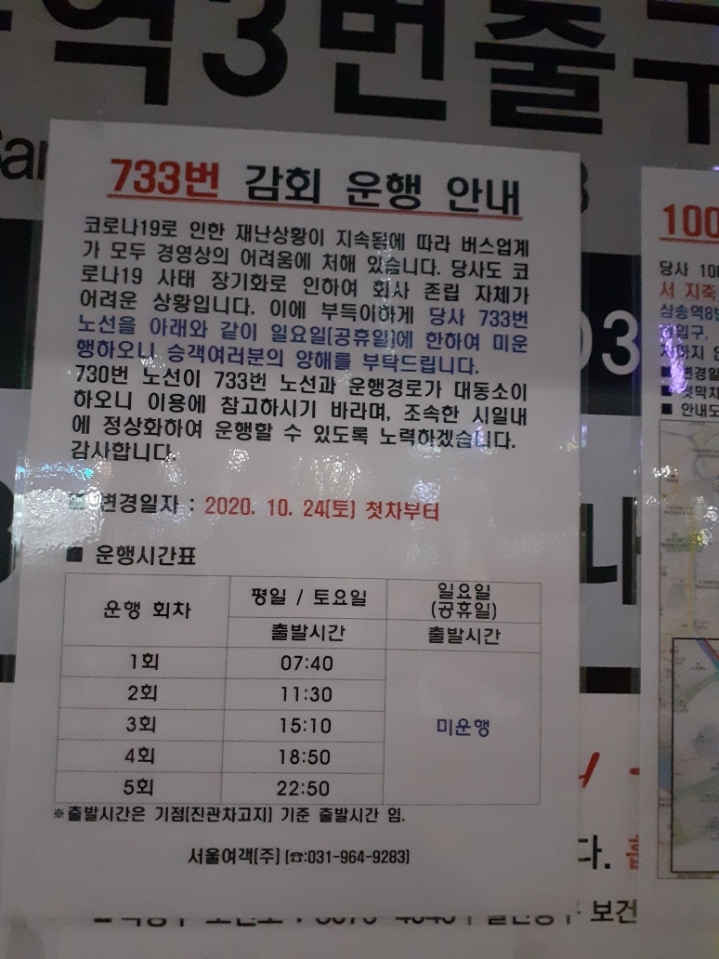 역3번출구
733번 감회 운행 안내
코로나19로 인한 재난상황이 지속됨에 따라 버스업계
가 모두 경영상의 어려움에 처해 있습니다. 당사도 코
로나19 사태 장기화로 인하여 회사 존립 자체가
어려운 상황입니다. 이에 부득이하게 당사 733번
노선을 아래와 같이 일요일(공휴일)에 한하여 미운
행하오니 승객여러분의 양해를 부탁드립니다.
730번 노선이 733번 노선과 운행경로가 대동소이
하오니 이용에 참고하시기 바라며, 조속한 시일내
에 정상화하여 운행할 수 있도록 노력하겠습니다.
감사합니다.
변경일자 : 2020. 10. 24(토) 첫차부터
■ 운행시간표
운행 회차 평일 / 토요일 일요일
(공휴일)
출발시간 출발시간
1회 07:40
2회 11:30
3회 15:10 미운행
4회 18:50
5회 22:50
※출발시간은 기점(진관차고지) 기준 출발시간 임.
서울여객(주) (☎:031-964-9283)
100
당사
서 지축
상송역8번
■ 안내도
보건